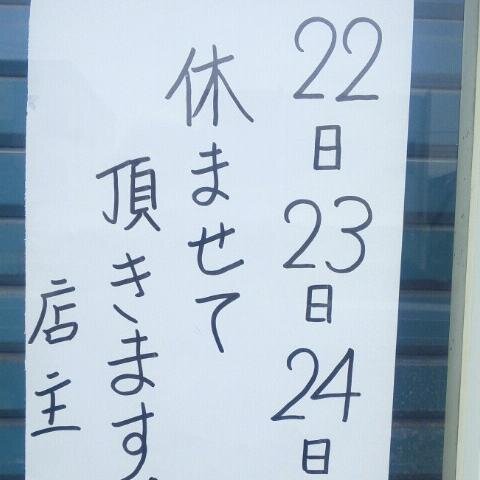 22日23日24日
休ませて
頂きます
店主